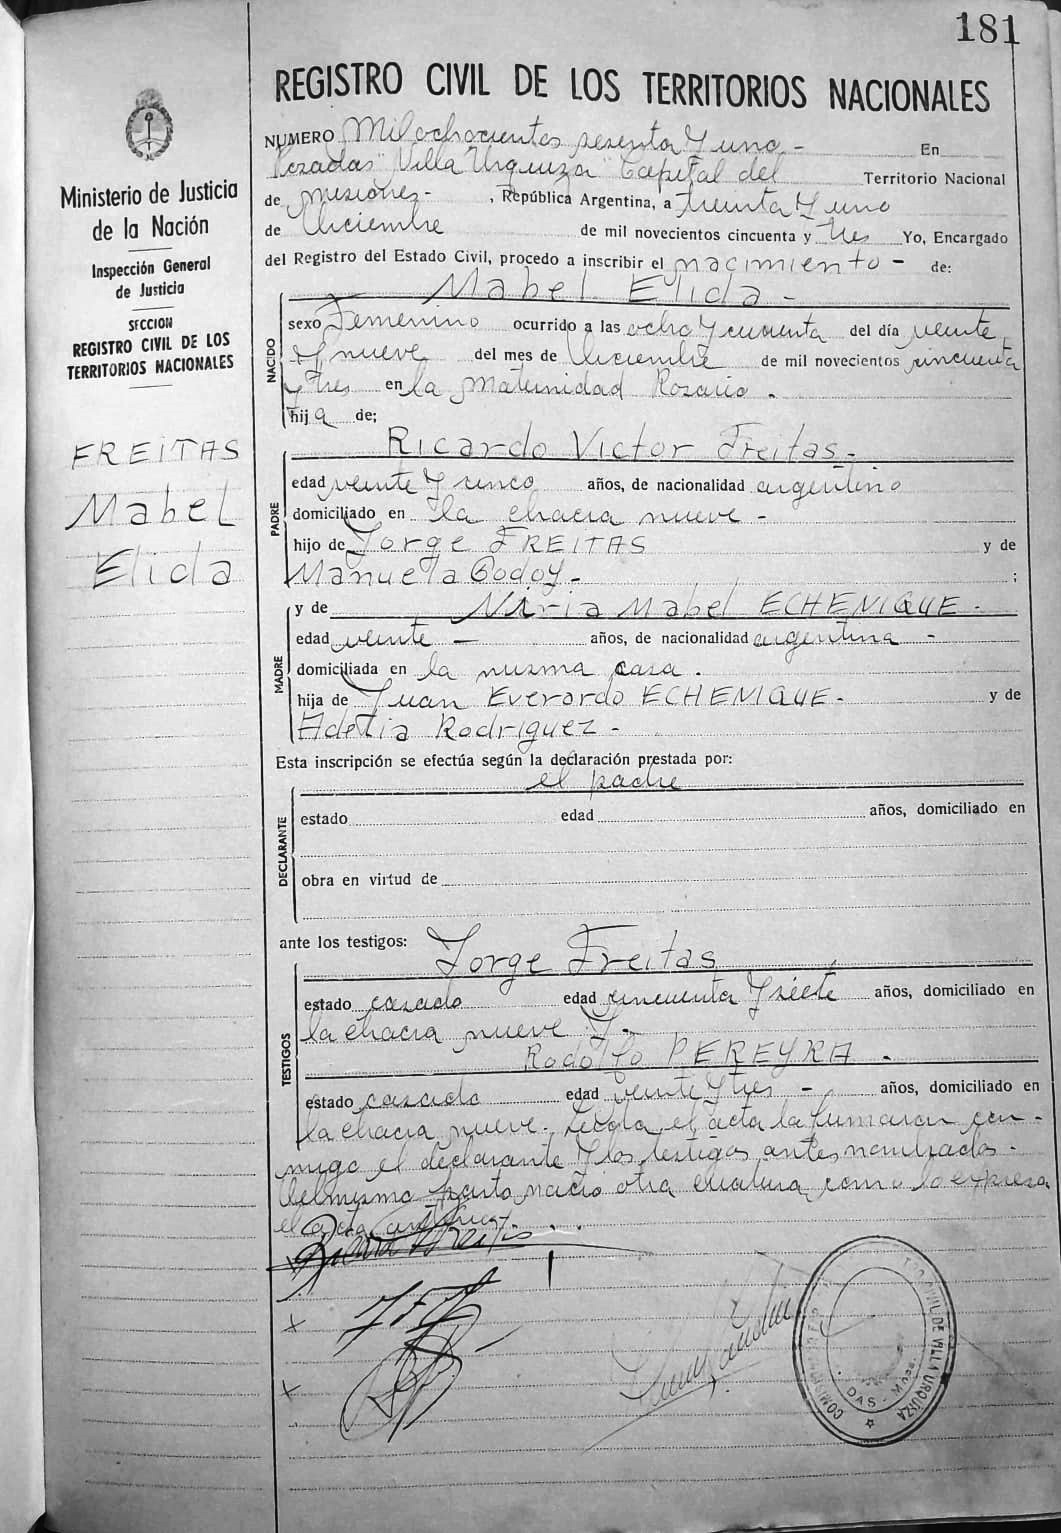 181
REGISTRO CIVIL DE LOS TERRITORIOS NACIONALES
Ministerio de Justicia
de la Nación
Inspección General
de Justicia
SECCION
REGISTRO CIVIL DE LOS
TERRITORIOS NACIONALES
FREITAS
Mabel
Elida
NUMERO Mil ochocientos sesenta y uno - En
Posadas "Villa Urquiza" Capital del Territorio Nacional
de Misiones - , República Argentina, a treinta y uno
de Diciembre de mil novecientos cincuenta y tres Yo, Encargado
del Registro del Estado Civil, procedo a inscribir el nacimiento - de:
NACIDO
Mabel Elida -
sexo Femenino ocurrido a las ocho y cuarenta del día veinte
y nueve del mes de Diciembre de mil novecientos cincuenta
y tres en la Maternidad Rosario .
hija de;
PADRE
Ricardo Victor Freitas -
edad veinte y cinco años, de nacionalidad argentino
domiciliado en la chacra nueve -
hijo de Jorge FREITAS y de
Manuela Godoy - ;
MADRE
y de Niria Mabel ECHENIQUE -
edad veinte - años, de nacionalidad argentina -
domiciliada en la misma casa .
hija de Juan Everardo ECHENIQUE - y de
Adelia Rodriguez -
Esta inscripción se efectúa según la declaración prestada por:
DECLARANTE
el padre
estado edad años, domiciliado en
obra en virtud de
ante los testigos:
TESTIGOS
Jorge Freitas
estado casado edad cincuenta y siete años, domiciliado en
la chacra nueve y -
Rodolfo PEREYRA -
estado casado edad veinte y tres - años, domiciliado en
la chacra nueve. Leída el acta la firmaron con-
migo el declarante y los testigos antes nombrados -
Del mismo parto nació otra criatura como lo expresa
el acta anterior.
Ricardo Freitas
x
x
CIVIL DE VILLA URQUIZA